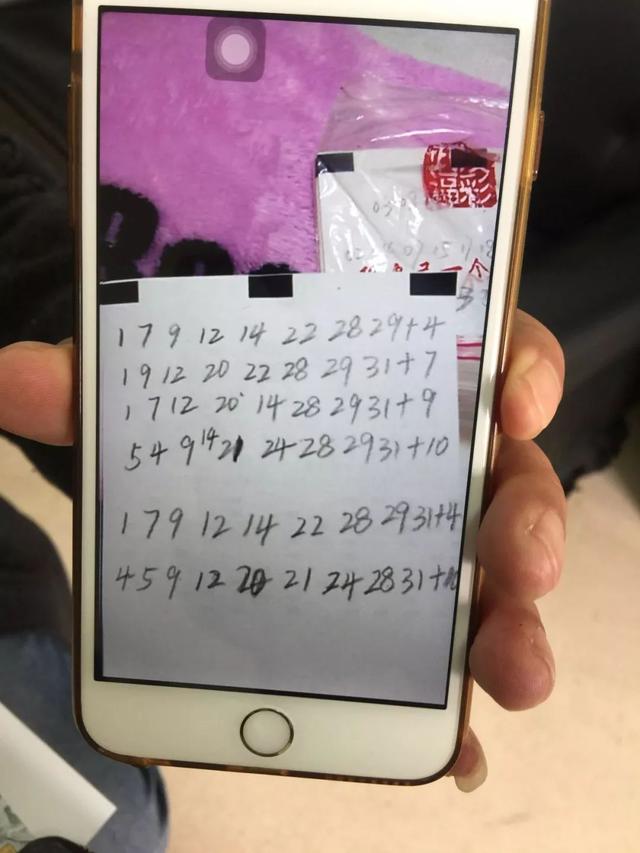 福彩
1 7 9 12 14 22 28 29+4
1 9 12 20 22 28 29 31+7
1 7 12 20 14 28 29 31+9
5 4 9 14 21 24 28 29 31+10
1 7 9 12 14 22 28 29 31+4
4 5 9 12 20 21 24 28 31+10